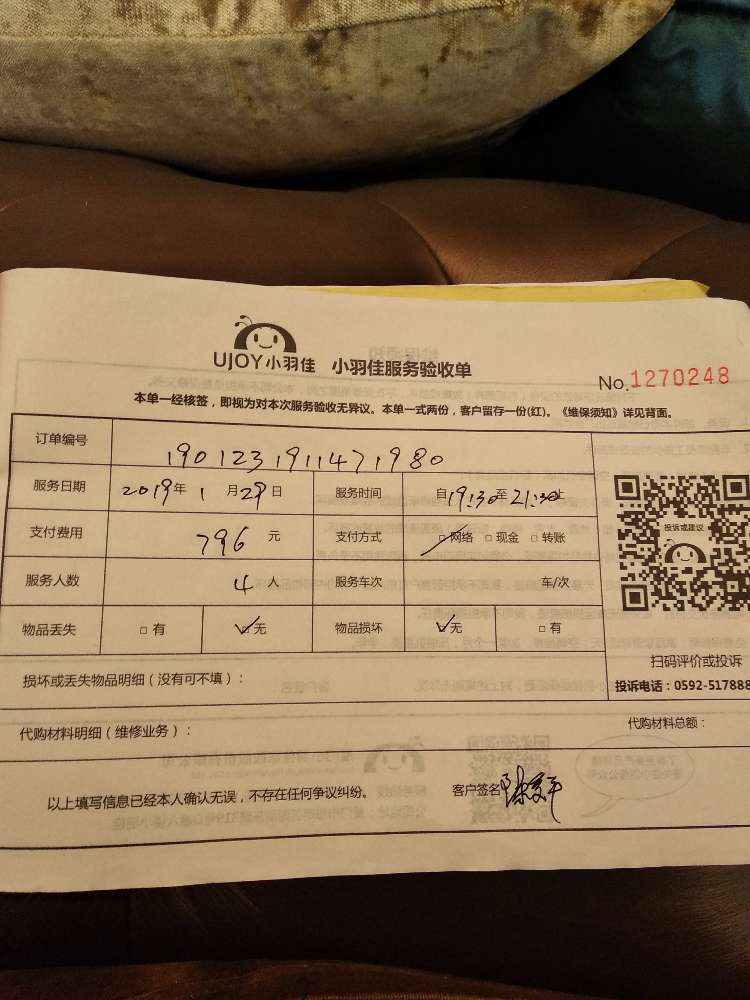 UJOY小羽佳 小羽佳服务验收单
No.1270248
本单一经核签，即视为对本次服务验收无异议。本单一式两份，客户留存一份(红)。《维保须知》详见背面。
订单编号 1901231911471980
服务日期 2019年1月29日 服务时间 自19:30至21:30止
投诉或建议
支付费用 796元 支付方式 □网络 □现金 □转账
服务人数 4人 服务车次 车/次
物品丢失 □有 □无 物品损坏 □无 □有
扫码评价或投诉
损坏或丢失物品明细（没有可不填）：
投诉电话：0592-517888
代购材料明细（维修业务）：
代购材料总额：
以上填写信息已经本人确认无误，不存在任何争议纠纷。 客户签名